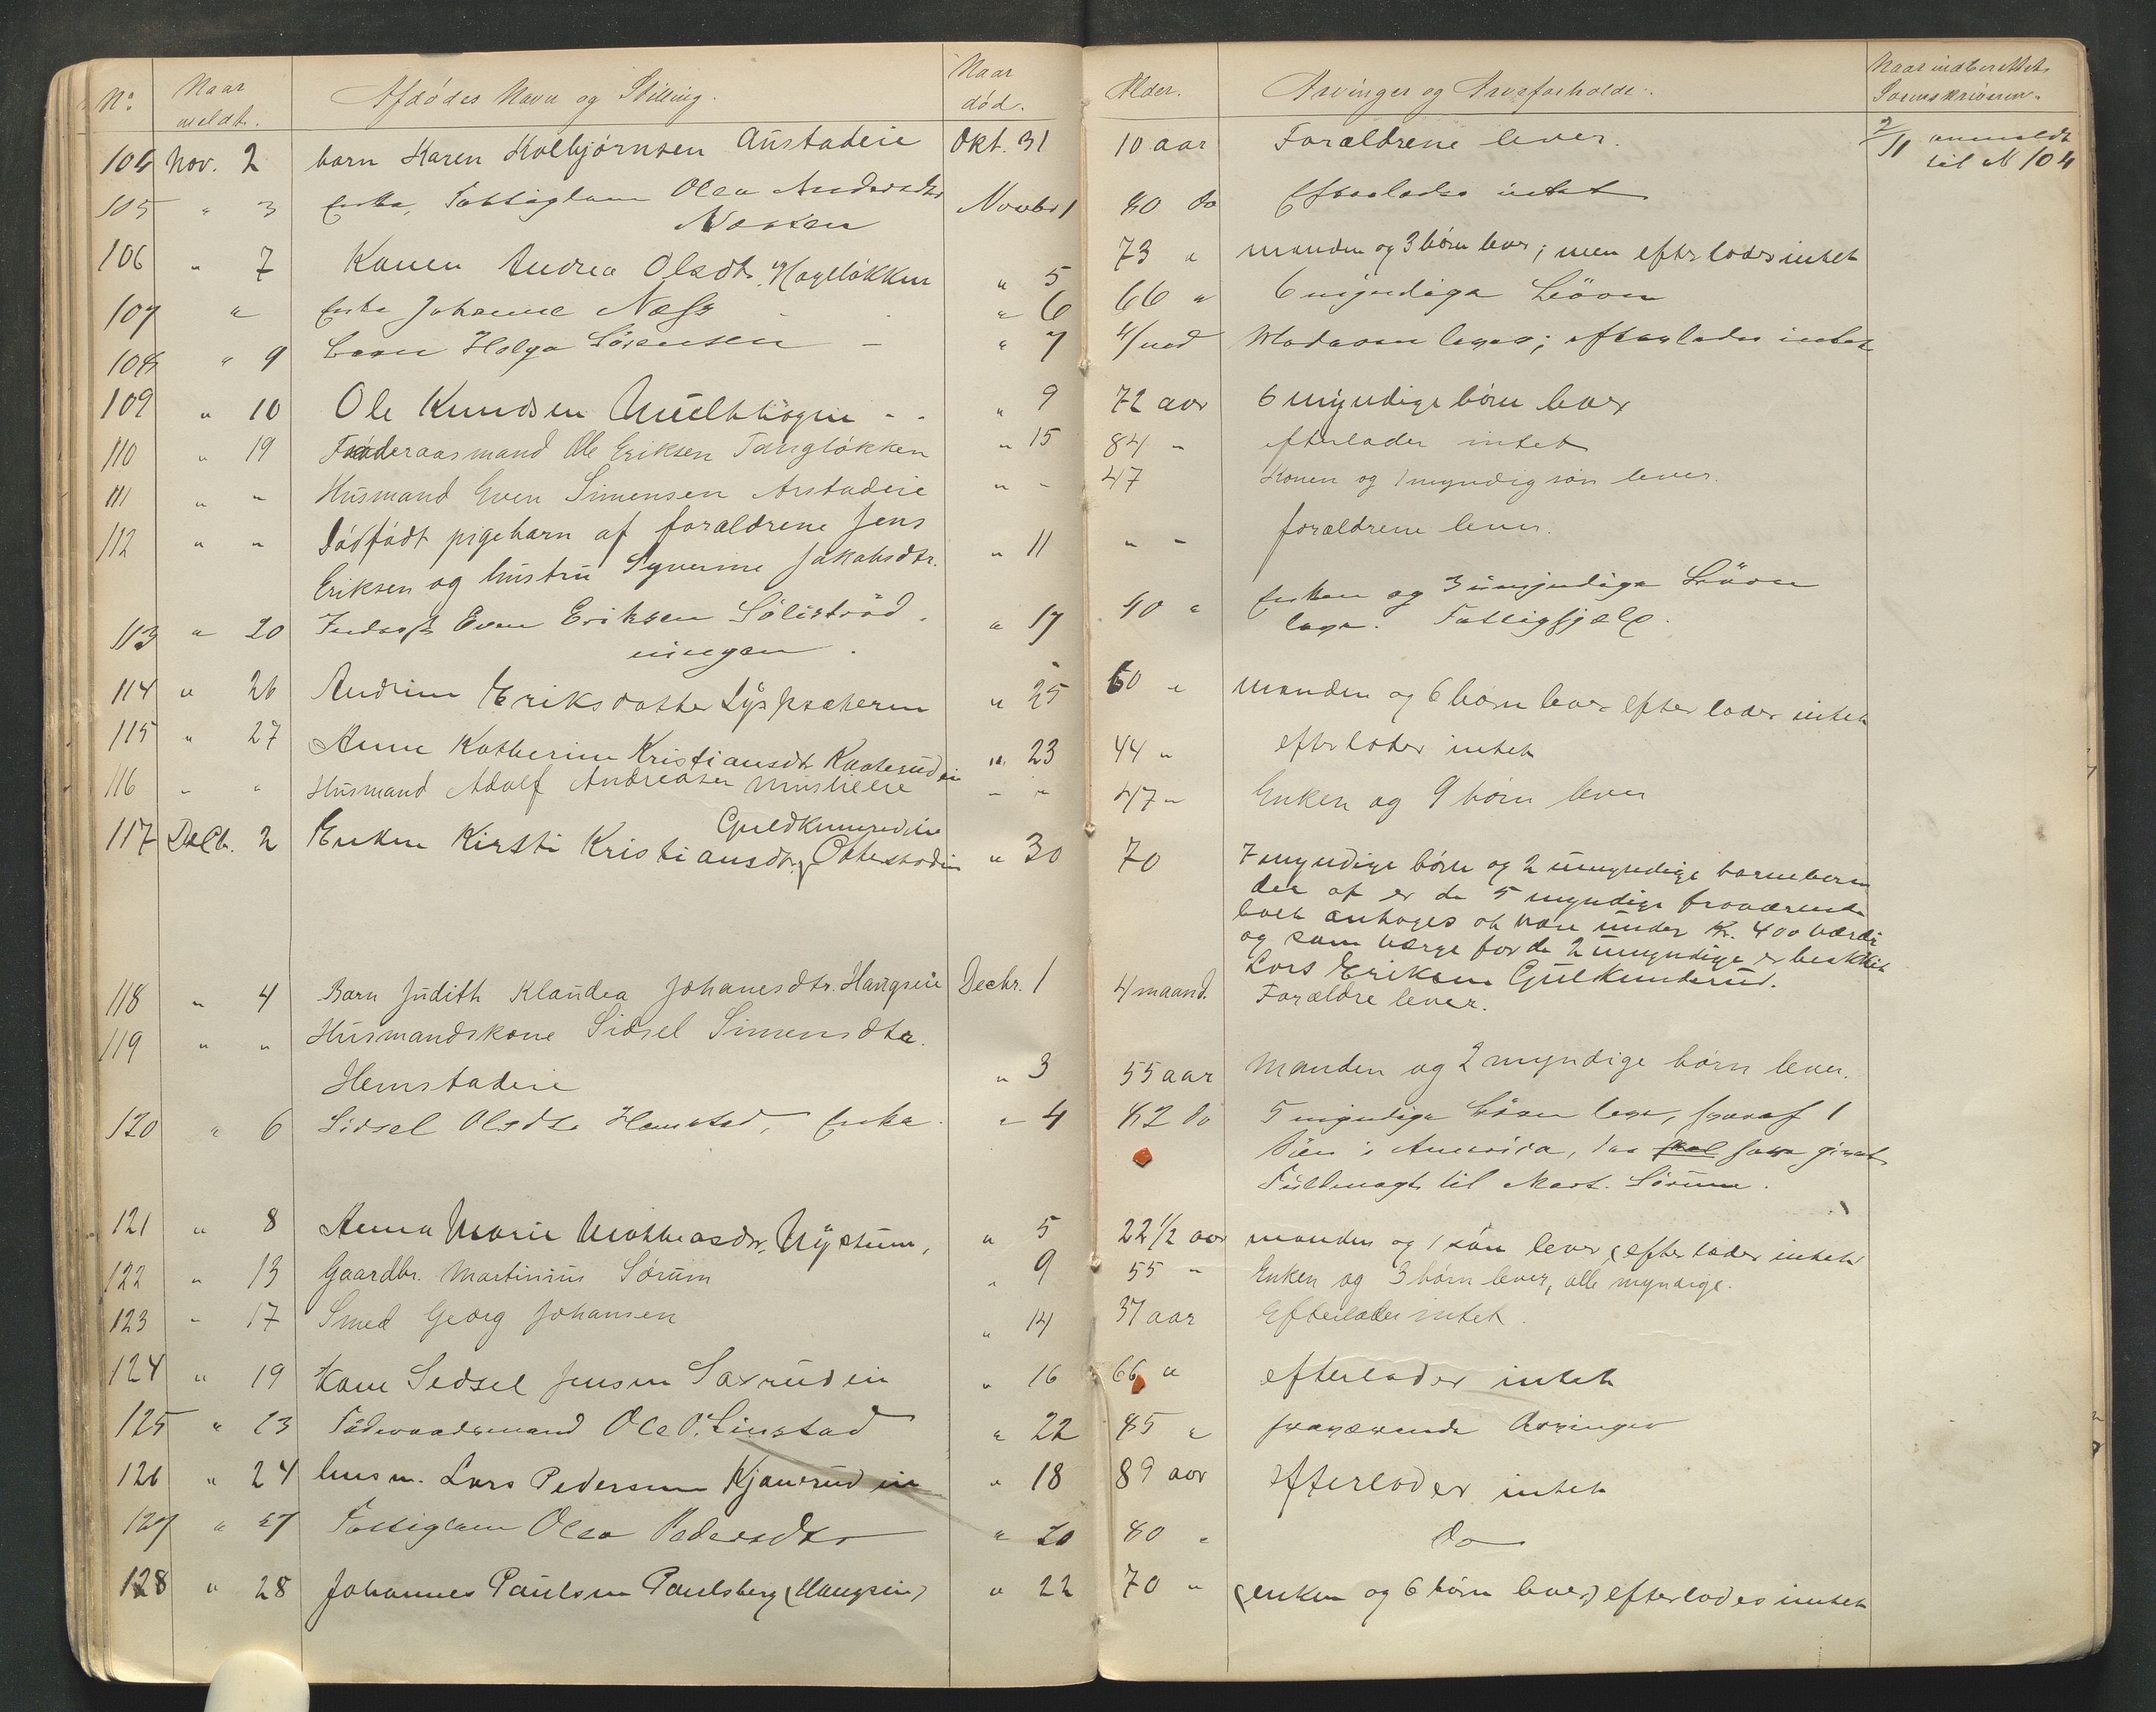 No. Naar meldt. Afdødes Navn og Stilling. Naar død. Alder. Arvinger og Arveforholde. Naar indberettet Sorenskriveren.
104 Nov. 2 barn Karen Kolbjørnsen Austadeie Okt. 31 10 aar Forældrene lever. 2/11 anmeldt til N 104
105 " 3 Enke, Fattiglem Olea Andersdtr Novbr 1 80 do Efterlader intet
106 " 7 Karen Andrea Olsdtr. Hageløkken " 5 73 " manden og 3 børn lever; men efterlader intet
107 " Enke Johanne Næss " 6 66 " 6 myndige Børn
108 " 9 Barn Helga Sørensen " 7 4/md Moderen lever; efterlader intet
109 " 10 Ole Knudsen " 9 72 aar 6 myndige børn lever
110 " 19 Føderaasmand Ole Eriksen Tangløkken " 15 84 " efterlader intet
111 " " Husmand Even Simensen Arstadeie " " 47 Konen og 1 myndig søn lever.
112 " " Dødfødt pigebarn af forældrene Jens " 11 " " forældrene lever.
Eriksen og hustru Syverine Jakobsdtr.
113 " 20 Inderst Even Eriksen " 17 40 " Enken og 3 umyndige Børn
lever. Fattighjælp.
114 " 26 Andrine Eriksdatter " 25 60 " manden og 6 børn lever efterlader intet
115 " 27 Anne Katherine Kristiansdtr " 23 44 " efterlader intet
116 " " Husmand Adolf Andreasen " " 47 " Enken og 9 børn lever
117 Decb. 2 Enken Kirsti Kristiansdtr. Ottestadeie " 30 70 7 myndige børn og 2 umyndige barnebørn
der af er de 5 myndige fraværende
boet antages at være under Kr. 400 værdi
og som værge for de 2 umyndige er beskikket
Lars Eriksen Gulkunderud.
118 " 4 Barn Judith Klaudea Johanesdtr. Haugseie Decbr. 1 4 maand. Forældre lever.
119 " " Husmandskone Sidsel Simensdtr.
Hemstadeie " 3 55 aar Manden og 2 myndige børn lever.
120 " 6 Sidsel Olsdtr Hemstad, Enke. " 4 82 do 5 myndige Børn lever, hvoraf 1
Søn i Amerika, der skal have givet
Fuldmagt til Mart. Sørum.
121 " 8 Anna Marie Mathiasdtr. Nystuen, " 5 22 1/2 aar manden og 1 søn lever, efterlader intet
122 " 13 Gaardbr. Martinius Sørum " 9 55 " Enken og 3 børn lever, alle myndige.
123 " 17 Smed Georg Johansen " 14 37 aar Efterlader intet.
124 " 19 Kone Sedsel Jensen " 16 66 " efterlader intet
125 " 23 Føderaadsmand Ole O. Linstad " 22 85 " fraværende Arvinger
126 " 24 husm. Lars Pedersen Kjauserud eie " 18 89 aar efterlader intet
127 " 27 Fattiglem Olea Pedersdtr " 20 80 " do
128 " 28 Johannes Paulsen Paulsberg (Haugseie) " 22 70 " (enken og 6 børn lever) efterlades intet